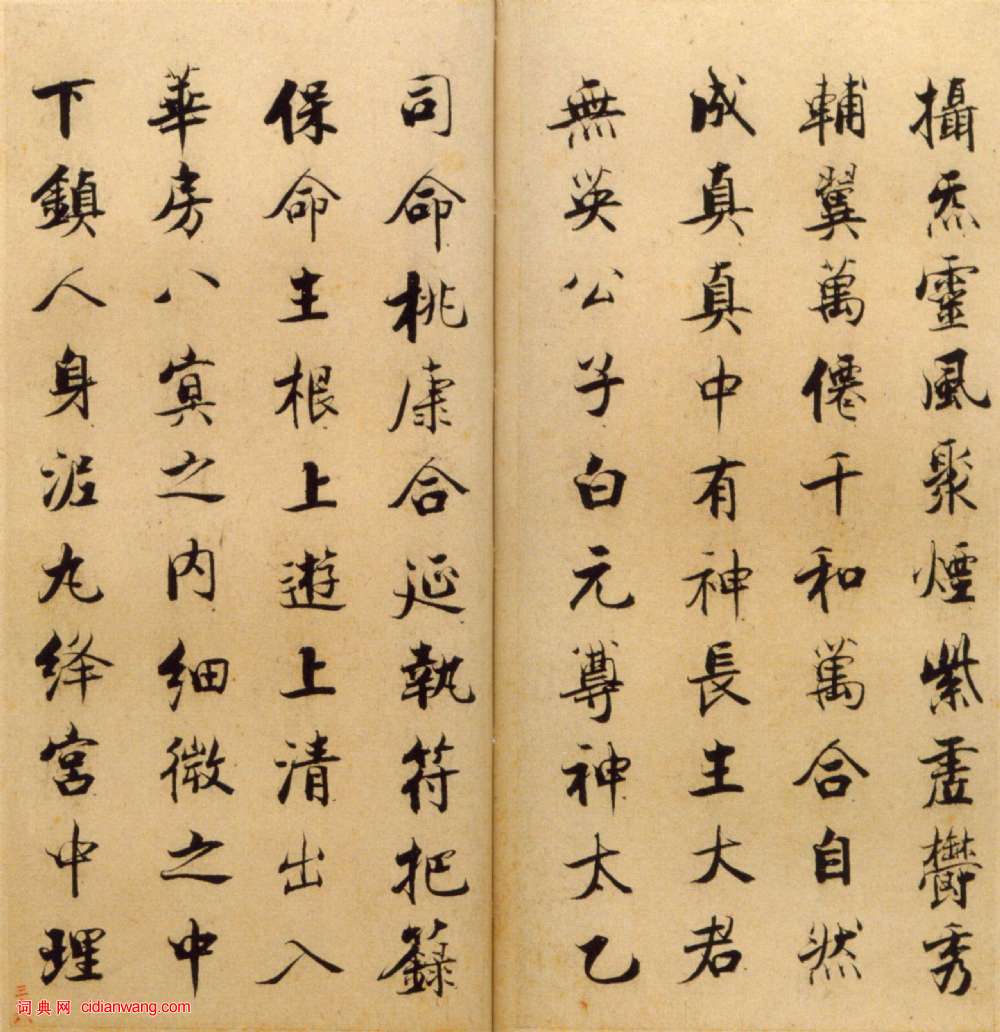 攝炁靈風聚煙紫虛欝秀
輔翼萬僊千和萬合自然
成真真中有神長生大君
無英公子白元尊神太乙
司命桃康合延執符把籙
保命生根上遊上清出入
華房八冥之內細微之中
下鎮人身泥丸绛宮中理
三六
词典网 cidianwang.com